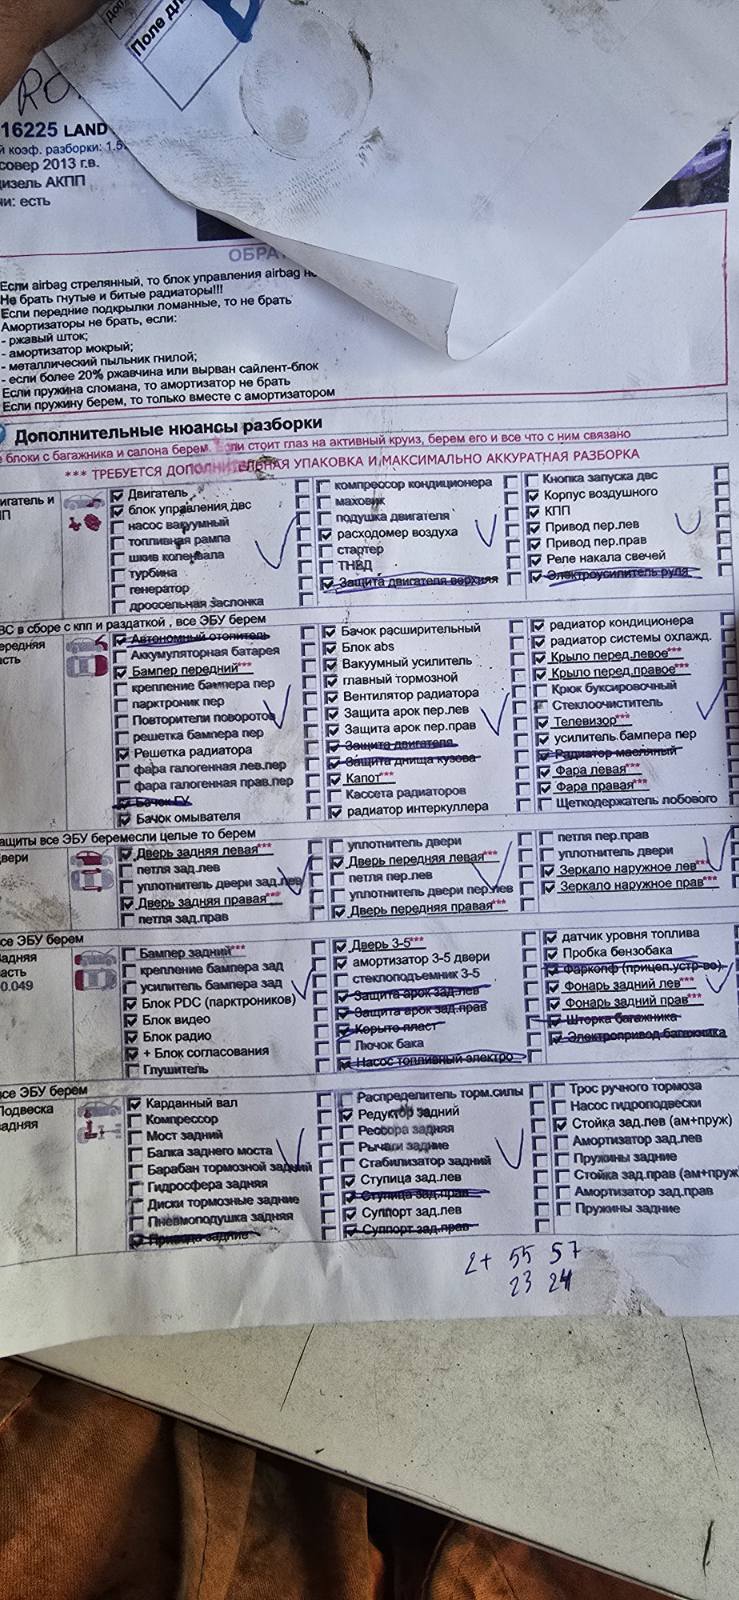 Поле дл
16225 LAND
й коэф. разборки: 1.5
совер 2013 г.в.
изель АКПП
чи: есть
ОБРА
Если airbag стрелянный, то блок управления airbag не
Не брать гнутые и битые радиаторы!!!
Если передние подкрылки ломанные, то не брать
Амортизаторы не брать, если:
- ржавый шток;
- амортизатор мокрый;
- металлический пыльник гнилой;
- если более 20% ржавчина или вырван сайлент-блок
Если пружина сломана, то амортизатор не брать
Если пружину берем, то только вместе с амортизатором
Дополнительные нюансы разборки
е блоки с багажника и салона берем. Если стоит глаз на активный круиз, берем его и все что с ним связано
*** ТРЕБУЕТСЯ ДОПОЛНИТЕЛЬНАЯ УПАКОВКА И МАКСИМАЛЬНО АККУРАТНАЯ РАЗБОРКА
игатель и
П
Двигатель
блок управления двс
насос вакуумный
топливная рампа
шкив коленвала
турбина
генератор
дроосельная заслонка
компрессор кондиционера
маховик
подушка двигателя
расходомер воздуха
стартер
ТНВД
Защита двигателя верхняя
Кнопка запуска двс
Корпус воздушного
КПП
Привод пер.лев
Привод пер.прав
Реле накала свечей
Электроусилитель руля
ВС в сборе с кпп и раздаткой , все ЭБУ берем
ередняя
сть
Автономный отопитель
Аккумуляторная батарея
Бампер передний***
крепление бампера пер
парктроник пер
Повторители поворотов
решетка бампера пер
Решетка радиатора
фара галогенная лев.пер
фара галогенная прав.пер
Бачок ГУ
Бачок омывателя
Бачок расширительный
Блок abs
Вакуумный усилитель
главный тормозной
Вентилятор радиатора
Защита арок пер.лев
Защита арок пер.прав
Защита двигателя
Защита днища кузова
Капот***
Кассета радиаторов
радиатор интеркуллера
радиатор кондиционера
радиатор системы охлажд.
Крыло перед.левое***
Крыло перед.правое***
Крюк буксировочный
Стеклоочиститель
Телевизор***
усилитель.бампера пер
Радиатор масляный
Фара левая***
Фара правая***
Щеткодержатель лобового
ащиты все ЭБУ беремесли целые то берем
вери
Дверь задняя левая***
петля зад.лев
уплотнитель двери зад.лев
Дверь задняя правая***
петля зад.прав
уплотнитель двери
Дверь передняя левая***
петля пер.лев
уплотнитель двери пер.лев
Дверь передняя правая***
петля пер.прав
уплотнитель двери
Зеркало наружное лев***
Зеркало наружное прав***
се ЭБУ берем
адняя
асть
0.049
Бампер задний***
крепление бампера зад
усилитель бампера зад
Блок PDC (парктроников)
Блок видео
Блок радио
+ Блок согласования
Глушитель
Дверь 3-5***
амортизатор 3-5 двери
стеклоподъемник 3-5
Защита арок зад.лев
Защита арок зад.прав
Корыто пласт
Лючок бака
Насос топливный электро
датчик уровня топлива
Пробка бензобака
Фаркопф (прицеп.устр-во)
Фонарь задний лев***
Фонарь задний прав***
Шторка багажника
Электропривод багажника
се ЭБУ берем
Подвеска
адняя
Карданный вал
Компрессор
Мост задний
Балка заднего моста
Барабан тормозной задний
Гидросфера задняя
Диски тормозные задние
Пневмоподушка задняя
Привода задние
Распределитель торм.силы
Редуктор задний
Рессора задняя
Рычаги задние
Стабилизатор задний
Ступица зад.лев
Ступица зад.прав
Суппорт зад.лев
Суппорт зад.прав
Трос ручного тормоза
Насос гидроподвески
Стойка зад.лев (ам+пруж)
Амортизатор зад.лев
Пружины задние
Стойка зад.прав (ам+пруж
Амортизатор зад.прав
Пружины задние
2+ 55 57
23 24